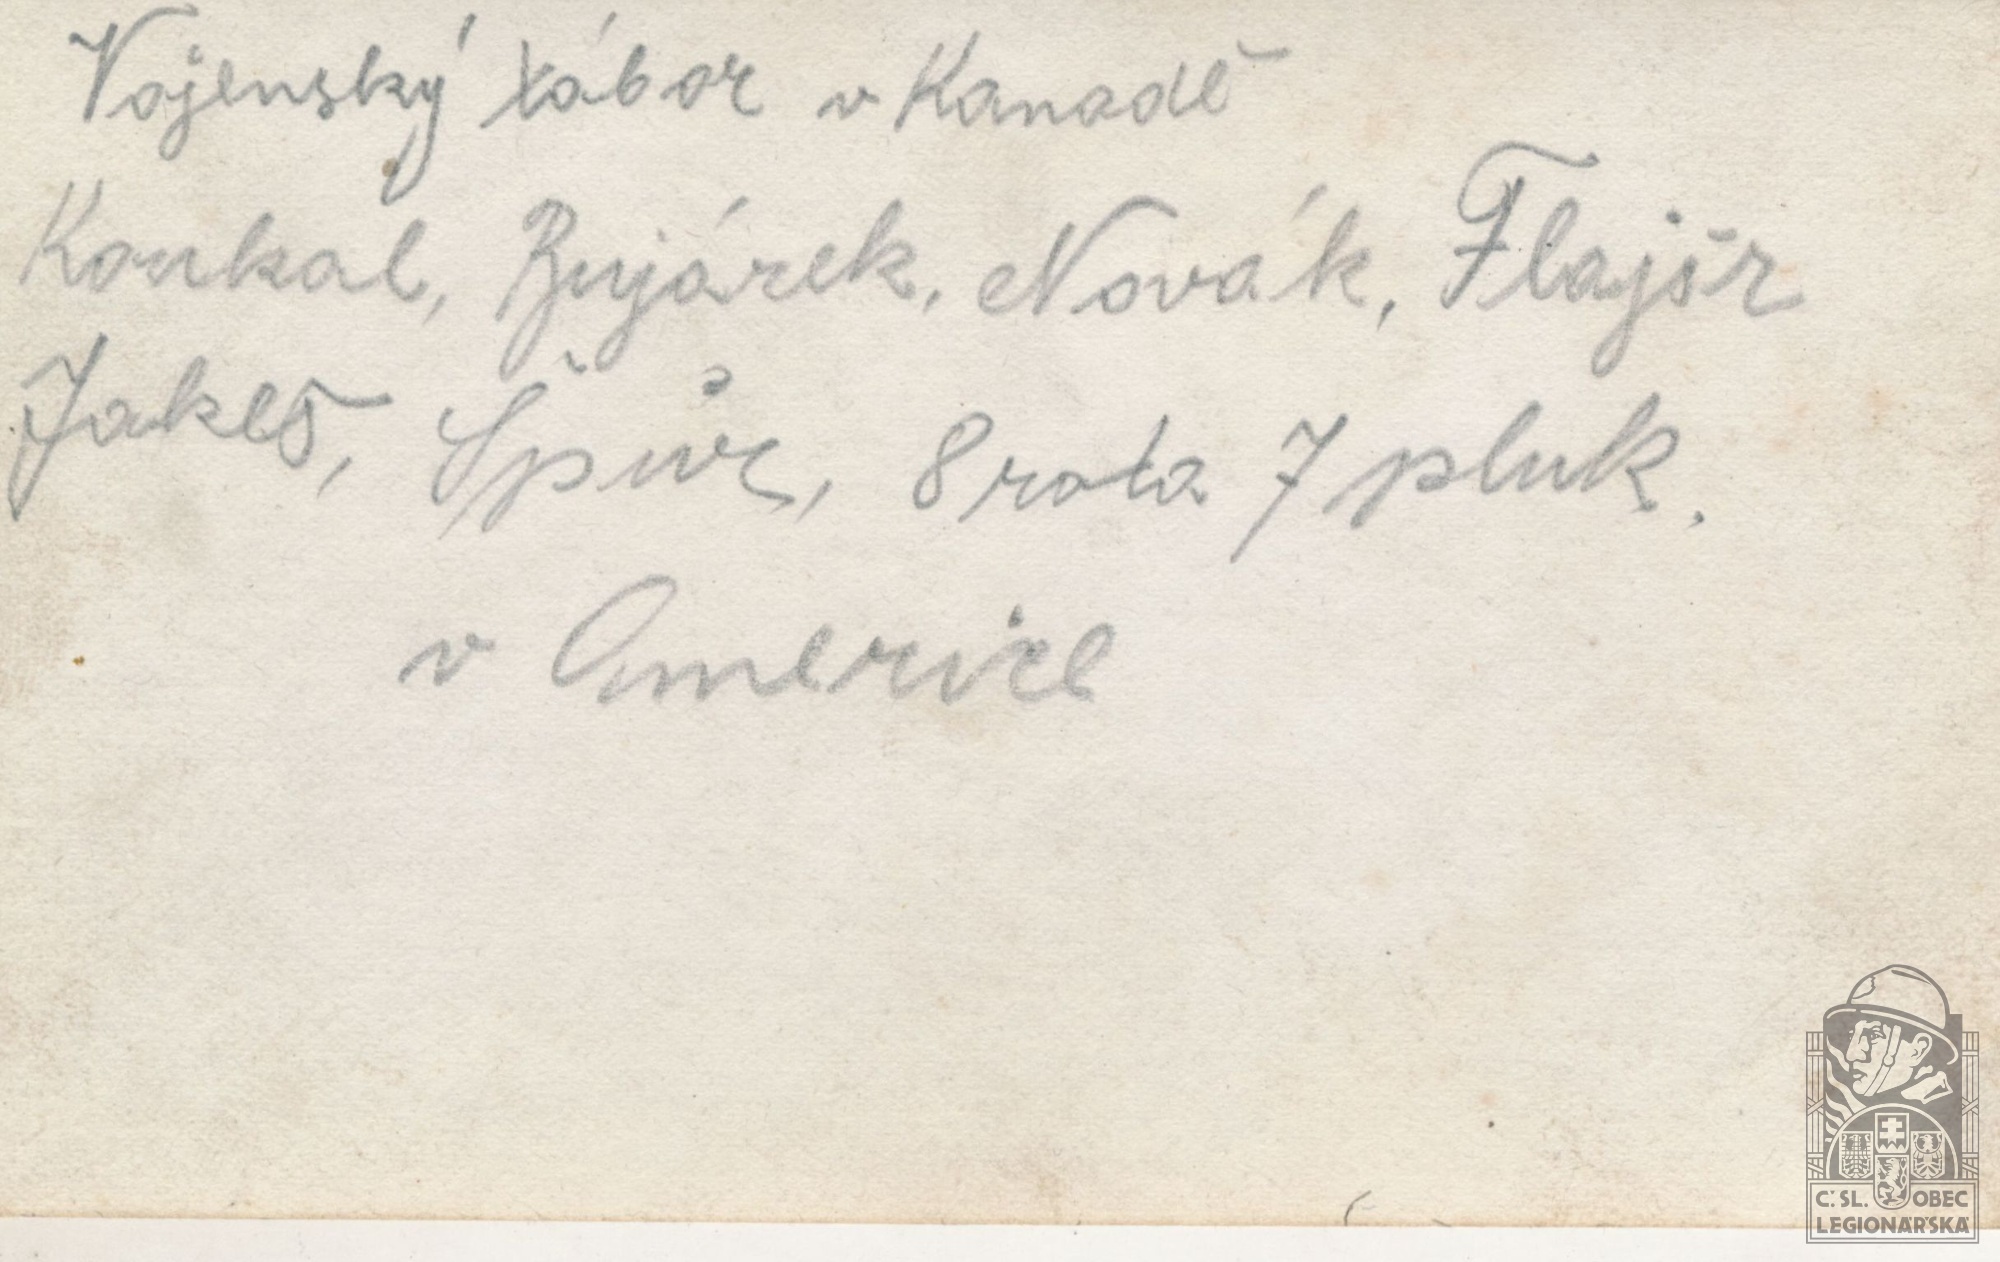 Vojenský tábor v Kanadě
Koukal, Bujárek, Novák, Flajšr
Jakeš, Špůr, 8 rota 7 pluk.
v Americe
Č. SL. OBEC
LEGIONÁŘSKÁ